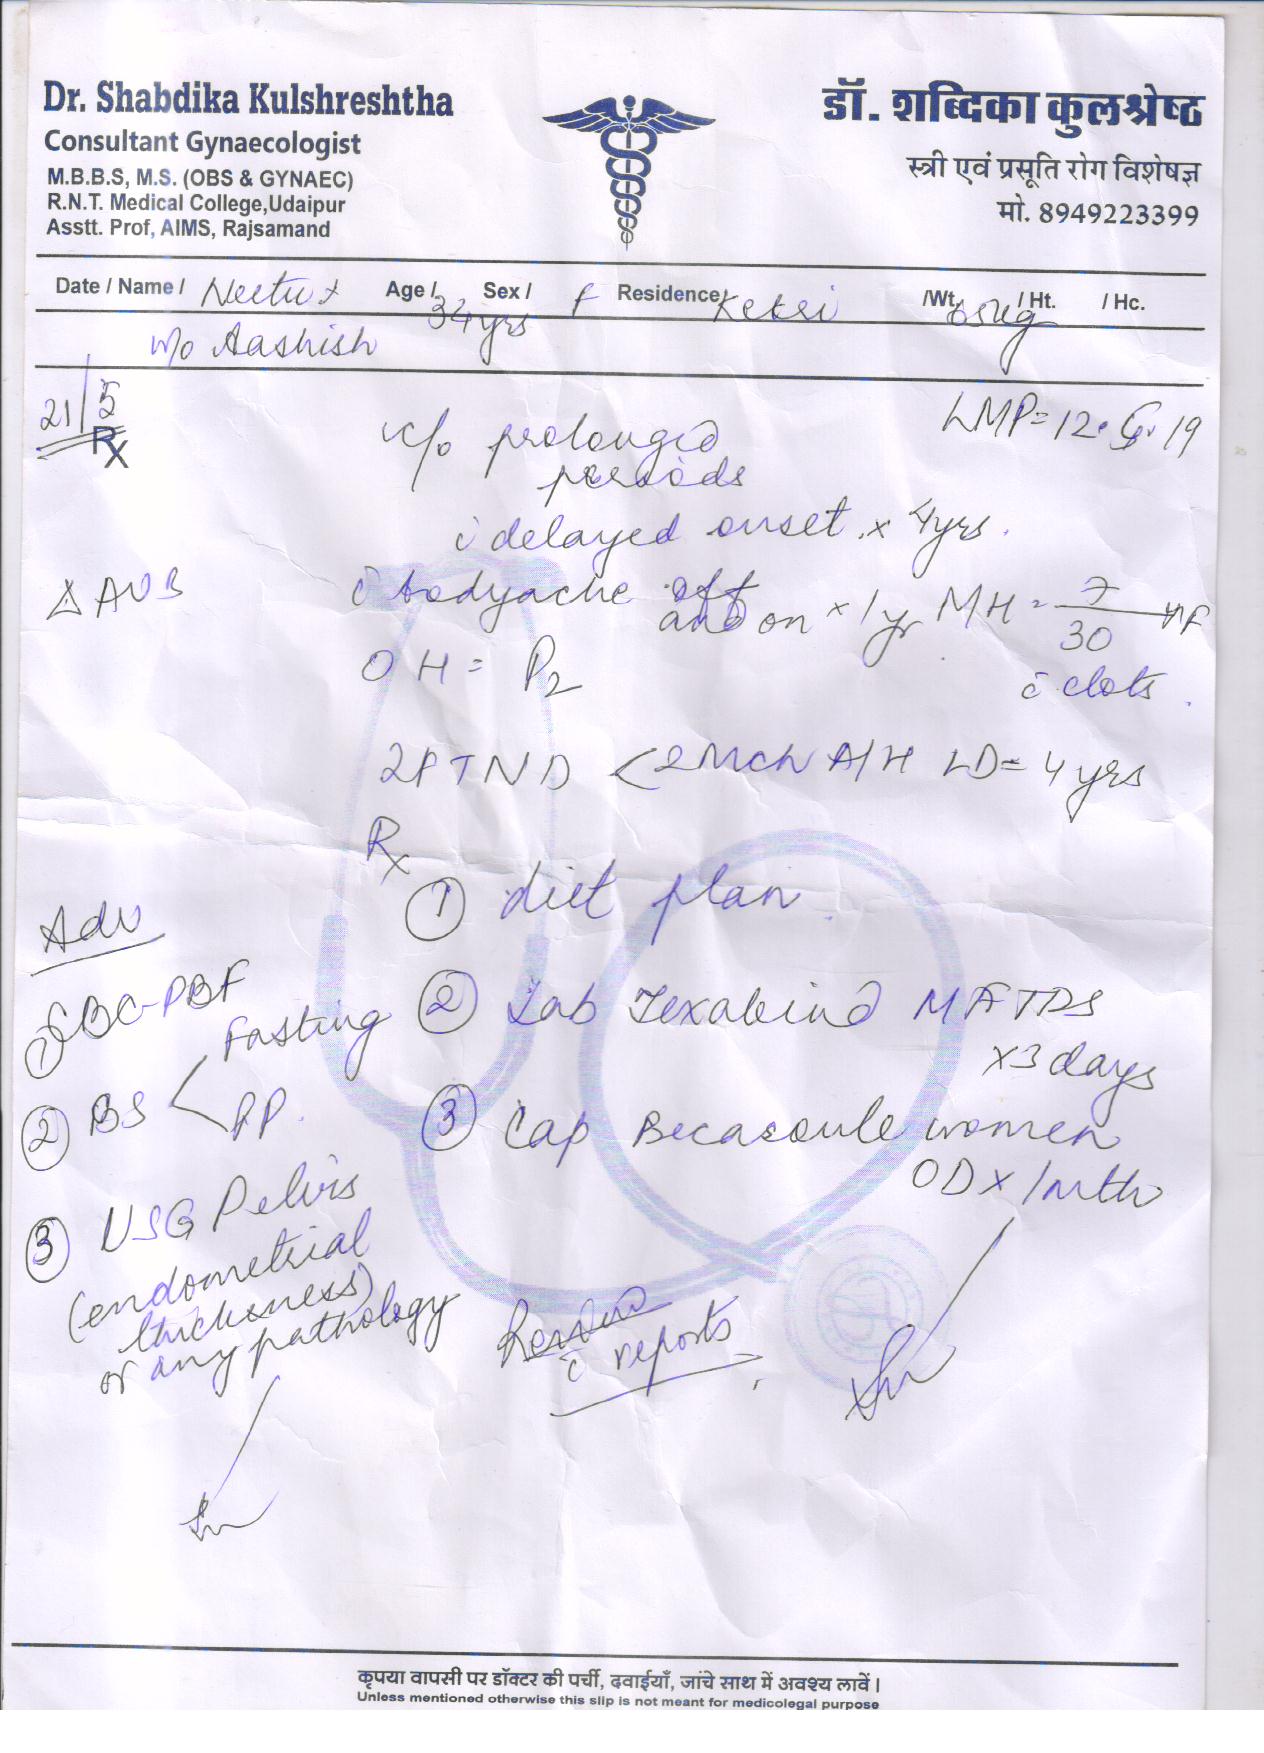 Dr. Shabdika Kulshreshtha
Consultant Gynaecologist
M.B.B.S, M.S. (OBS & GYNAEC)
R.N.T. Medical College,Udaipur
Asstt. Prof, AIMS, Rajsamand
डॉ. शब्दिका कुलश्रेष्ठ
स्त्री एवं प्रसूति रोग विशेषज्ञ
मो. 8949223399
Date / Name / Neetu Age / 34yrs Sex / f Residence/ Kekri /Wt. / Ht. / Hc.
w/o Aashish
21/5
Rx
LMP=12.5.19
c/o prolonged
periods
c delayed onset x 4yrs.
△ AUB
c bodyache off
and on x 1yr
MH = 7/30
c clots
OH = P2
2FTND < 2Mch A/H LD= 4yrs
Rx
① diet plan
② Tab Texakind MF TDS
x3days
③ Cap Becasoule women
OD x 1mth
Adv
① CBC-PBF
② BS < Fasting
PP.
③ USG Pelvis
(endometrial
thickness)
or any pathology
Review
c reports
कृपया वापसी पर डॉक्टर की पर्ची, दवाईयाँ, जांचे साथ में अवश्य लावें।
Unless mentioned otherwise this slip is not meant for medicolegal purpose